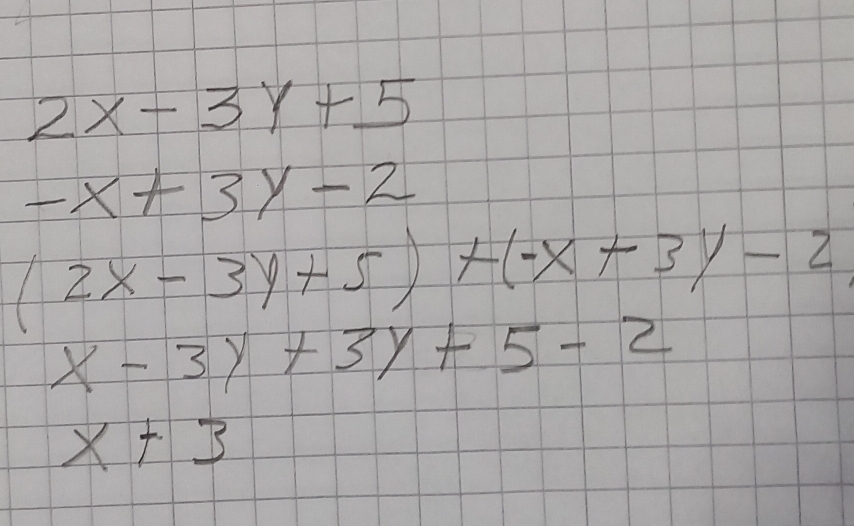 2x - 3y + 5
-x + 3y - 2
(2x - 3y + 5) + (-x + 3y - 2
x - 3y + 3y + 5 - 2
x + 3